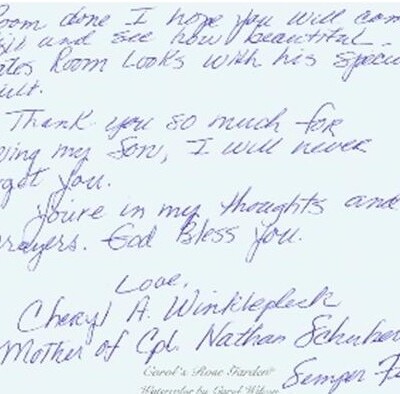 oom done I hope you will com
sit and see how beautiful
ates Room Looks with his specia
uilt.
Thank you so much for
ving my Son, I will never
rget you.
You're in my thoughts and
rayers. God Bless You.
Love,
Cheryl A. Winklepleck
Mother of Cpl. Nathan Schuber
Carol's Rose Garden
Semper Fi
Watercolor by Carol Wilson